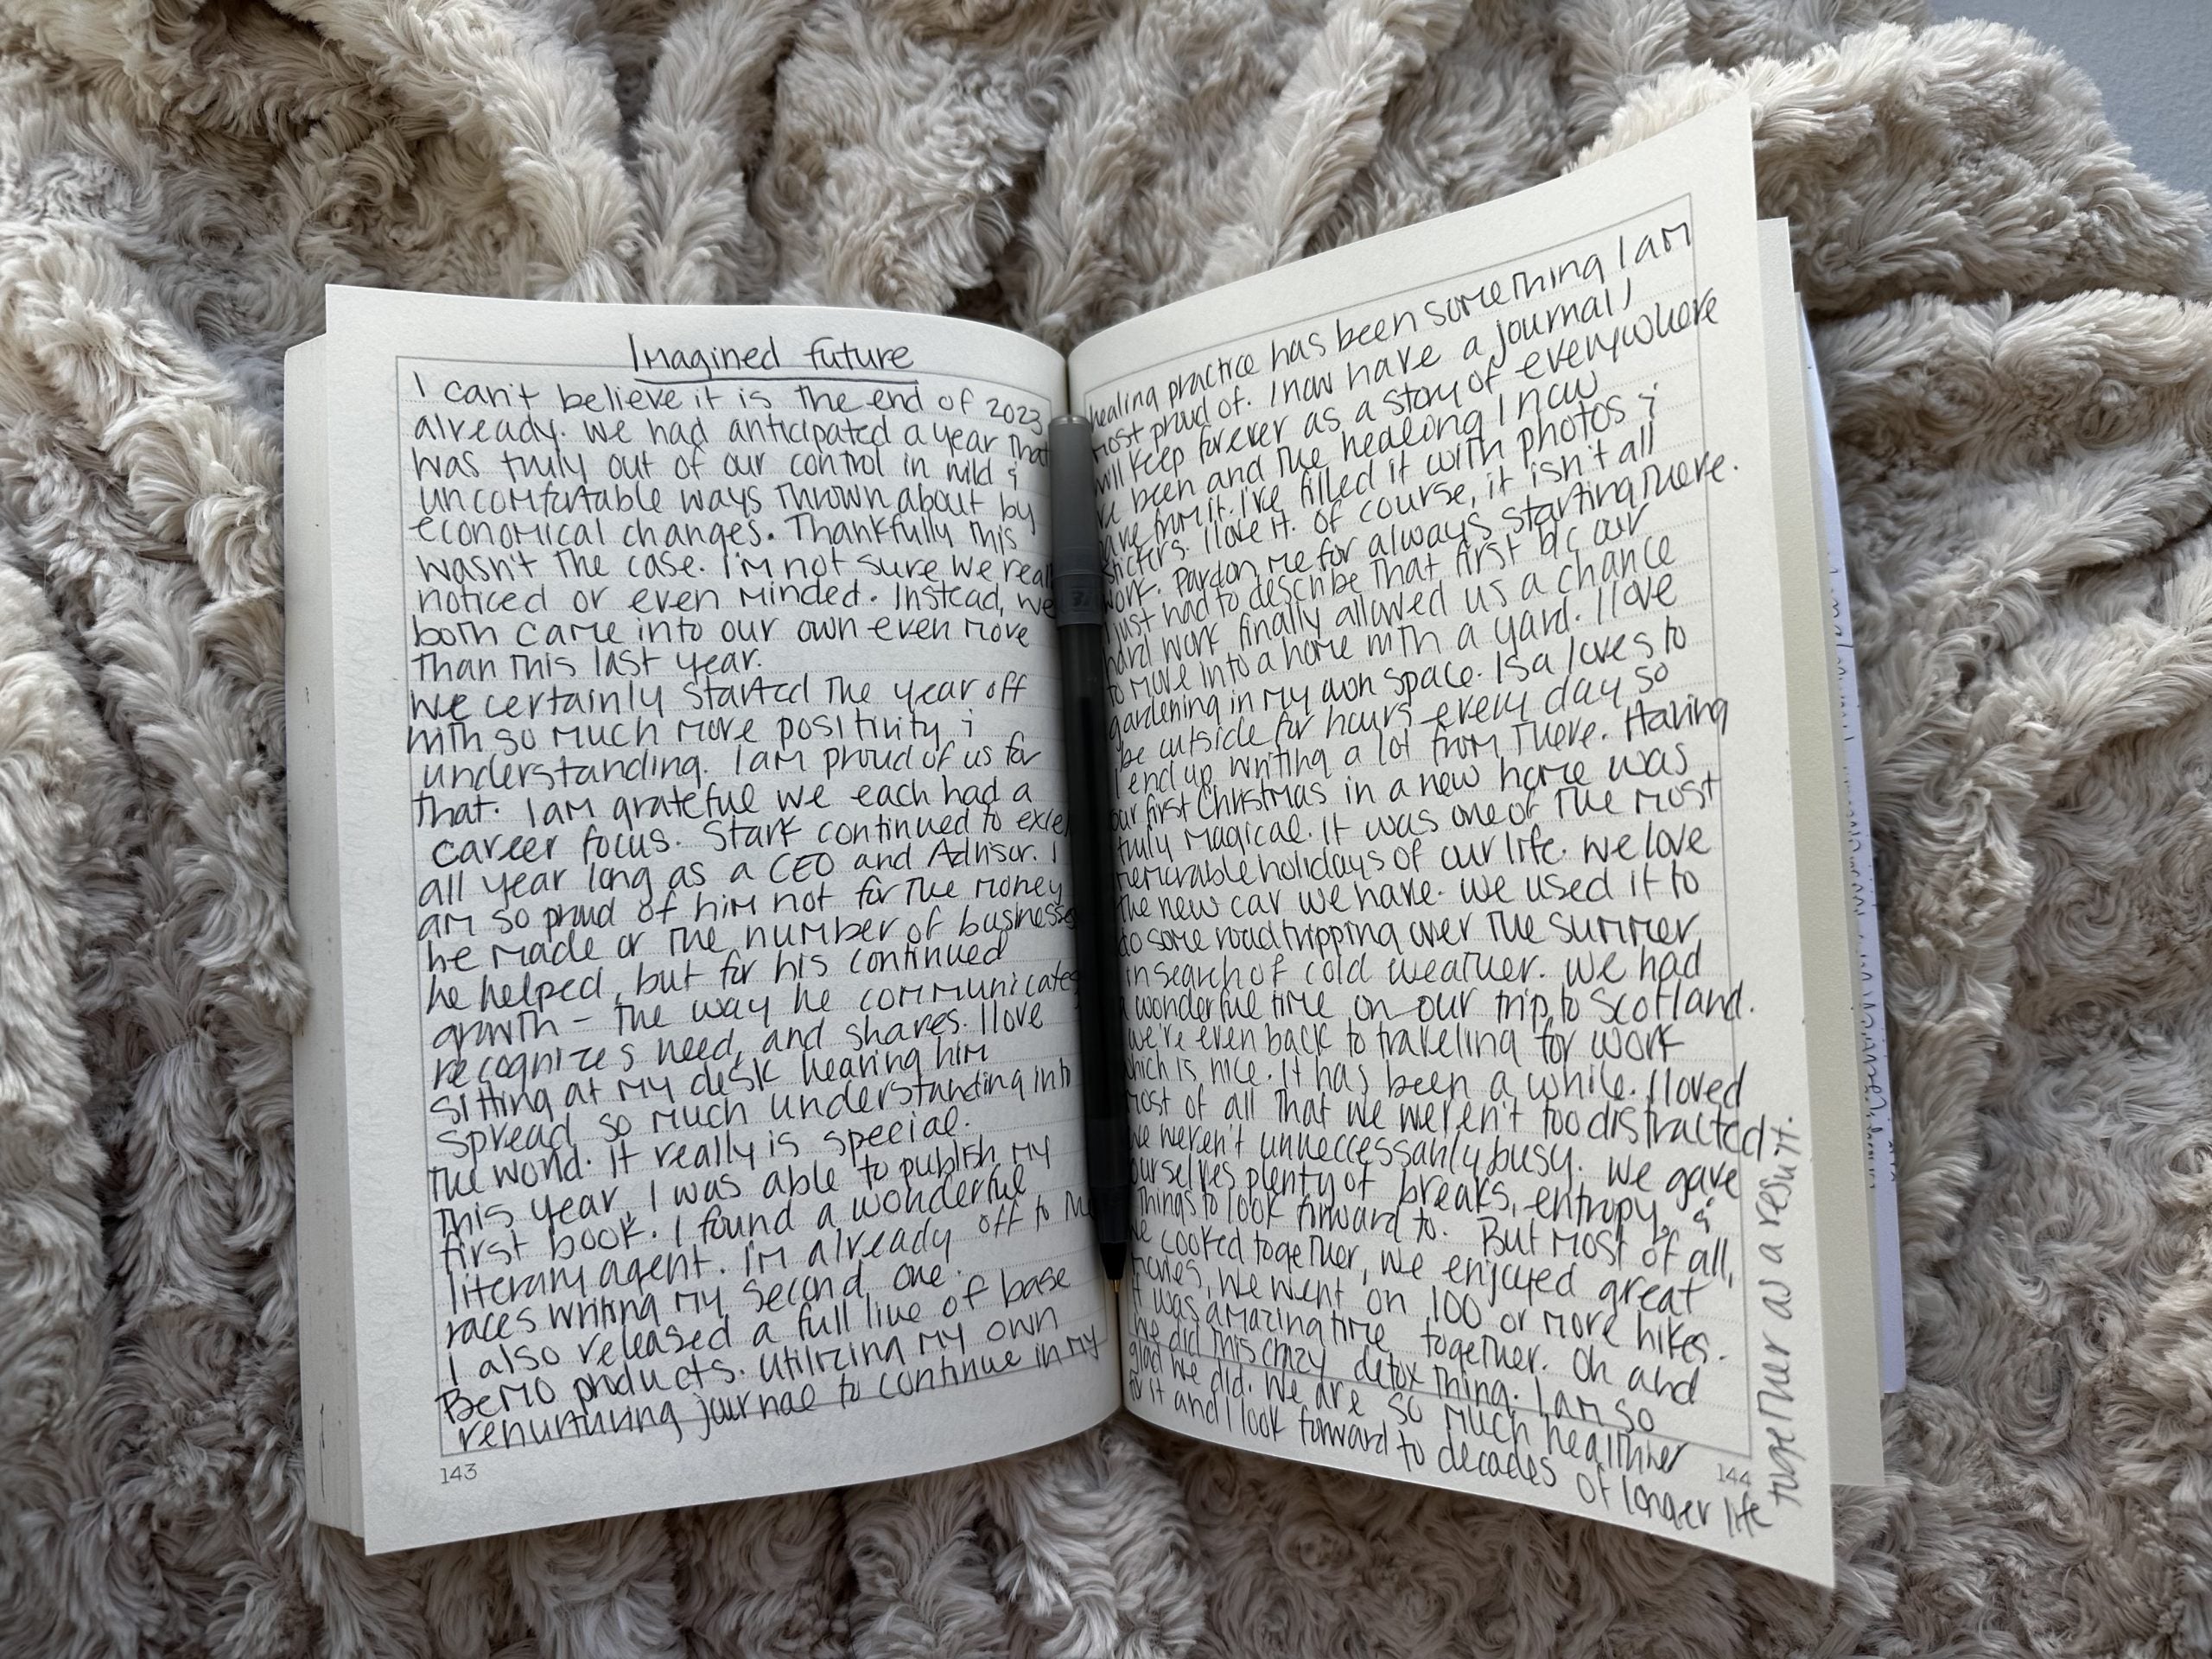 Imagined future
I can't believe it is the end of 2023
already. We had anticipated a year that
was truly out of our control in wild &
uncomfortable ways thrown about by
economical changes. Thankfully this
wasn't the case. I'm not sure we real
noticed or even minded. Instead, we
both came into our own even more
than this last year.
We certainly started the year off
with so much more positivity &
understanding. I am proud of us for
that. I am grateful we each had a
career focus. Stark continued to excel
all year long as a CEO and Advisor. I
am so proud of him not for the money
he made or the number of businesses
he helped, but for his continued
growth - the way he communicates,
recognizes need, and shares. I love
sitting at my desk hearing him
spread so much understanding into
the world. It really is special.
This year, I was able to publish my
first book. I found a wonderful
literary agent. I'm already off to the
races writing my second one.
I also released a full line of base
BeMo products. Utilizing my own
renurturing journal to continue in my
143
healing practice has been something I am
most proud of. I now have a journal I
will keep forever as a story of everywhere
I've been and the healing I now
have from it. I've filled it with photos &
stickers. I love it. Of course, it isn't all
work. Pardon me for always starting there.
I just had to describe that first b/c our
hard work finally allowed us a chance
to move into a home with a yard. I love
gardening in my own space. Isa loves to
be outside for hours every day so
I end up writing a lot from there. Having
our first Christmas in a new home was
truly magical. It was one of the most
memorable holidays of our life. We love
the new car we have. We used it to
do some roadtripping over the summer
in search of cold weather. We had
a wonderful time on our trip to Scotland.
We're even back to traveling for work
which is nice. It has been a while. I loved
most of all that we weren't too distracted.
We weren't unneccessarily busy. We gave
ourselves plenty of breaks, entropy, &
things to look forward to. But most of all,
we cooked together, we enjoyed great
movies, we went on 100 or more hikes.
It was amazing time together. Oh and
we did this crazy detox thing. I am so
glad we did. We are so much healthier
for it and I look forward to decades of longer life
together as a result.
144